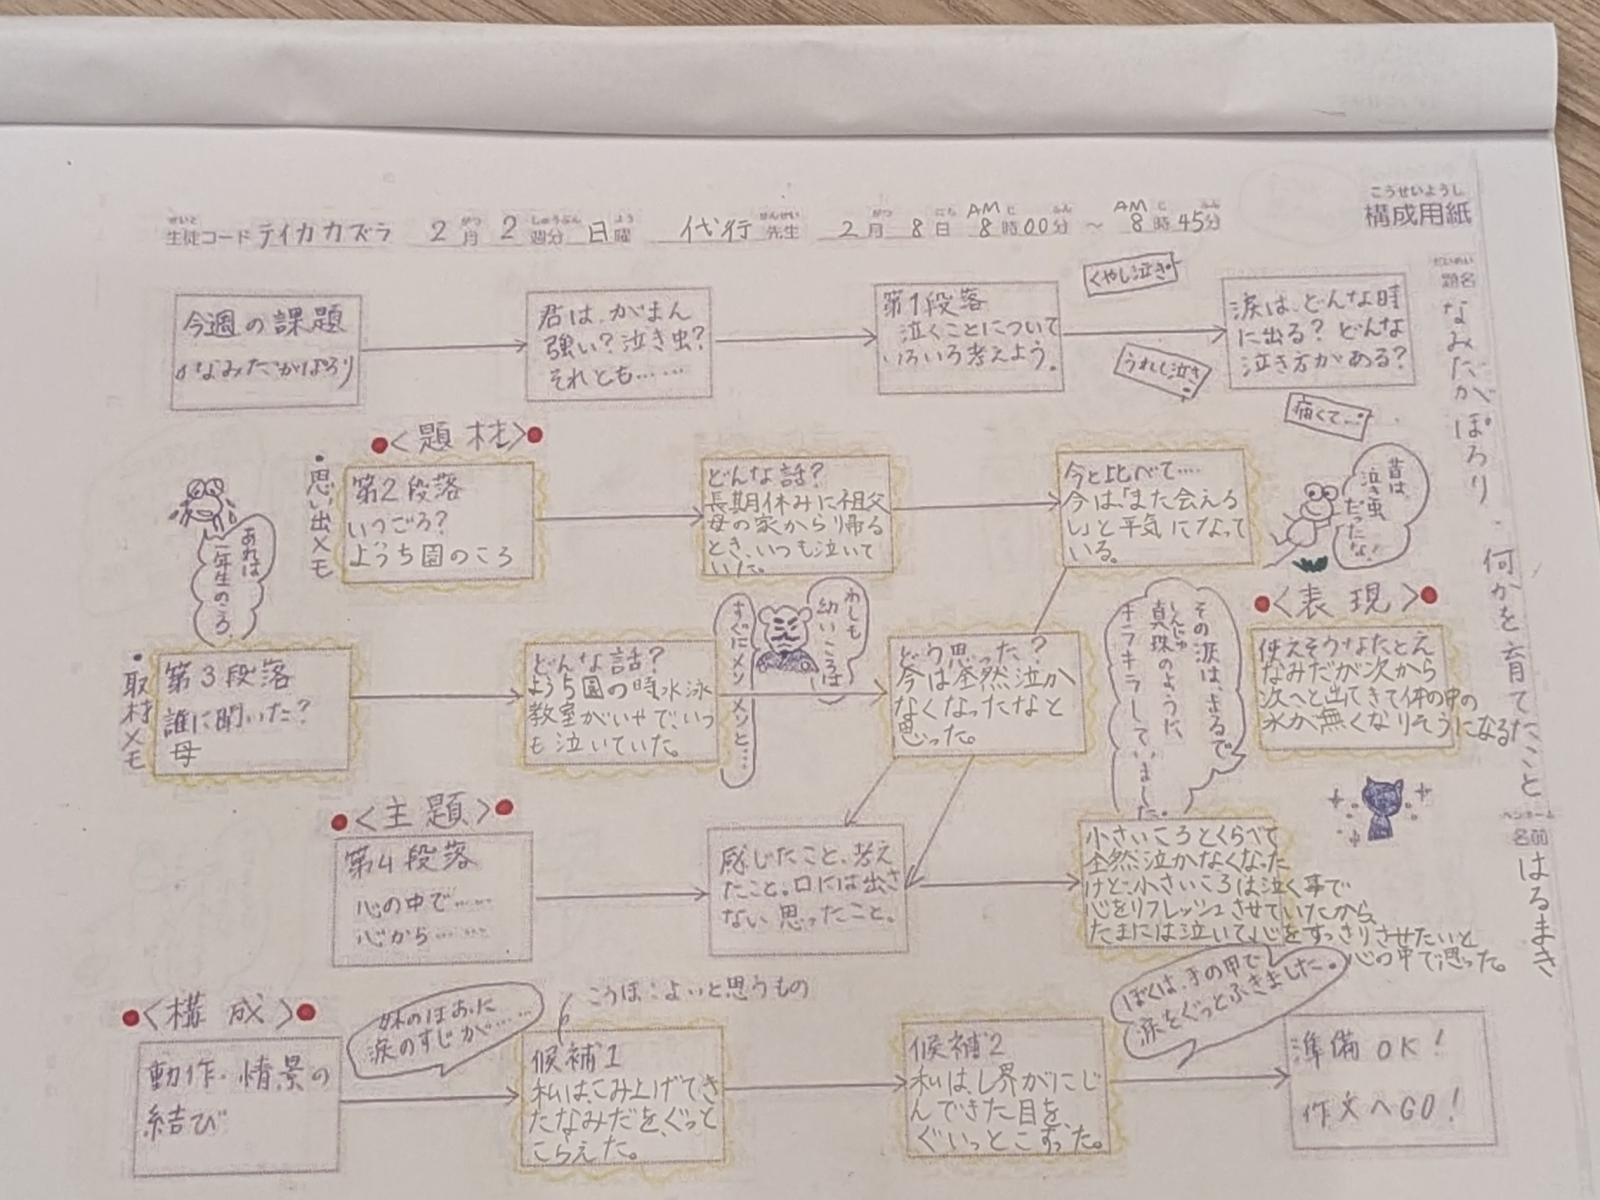 こうせいようし
構成用紙
せいと
生徒コード テイカカズラ 2月 2週分 日曜 代行先生 2月8日 AM8時00分 ~ AM8時45分
だいめい
題名
なみだがぽろり・何かを育てたこと
ペンネーム
名前
はるまき
今週の課題
なみだがぽろり
君は、がまん
強い?泣き虫?
それとも……
第1段落
泣くことについて
いろいろ考えよう。
くやし泣き
うれし泣き
痛くて…
涙は、どんな時
に出る?どんな
泣き方がある?
<題材>
・思い出メモ
第2段落
いつごろ?
ようち園のころ
あれは
一年生のころ
どんな話?
長期休みに祖父
母の家から帰る
とき、いつも泣いて
いた。
今と比べて…
今は「また会える
し」と平気になって
いる。
昔は、
泣き虫
だったな!
・取材メモ
第3段落
誰に聞いた?
母
どんな話?
ようち園の時、水泳
教室がいやで、いつ
も泣いていた。
わしも
幼いころは
すぐにメソメソと…
どう思った?
今は全然泣か
なくなったなと
思った。
その涙は、まるで
しんじゅ
真珠のように、
キラキラしていました。
<表現>
使えそうなたとえ
なみだが次から
次へと出てきて体の中の
水が無くなりそうになる
<主題>
第4段落
心の中で……
心から……
感じたこと、考え
たこと。口には出さ
ない思ったこと。
小さいころとくらべて
全然泣かなくなった
けど、小さいころは泣く事で
心をリフレッシュさせていたから、
たまには泣いて心をすっきりさせたいと
心の中で思った。
<構成>
動作・情景の
結び
妹のほおに
涙のすじが……
こうほ:よいと思うもの
候補1
私は、こみ上げてき
たなみだを、ぐっと
こらえた。
候補2
私は、し界がにじ
んできた目を、
ぐいっとこすった。
ぼくは、手の甲で
涙をぐっとふきました。
準備OK!
作文へGO!